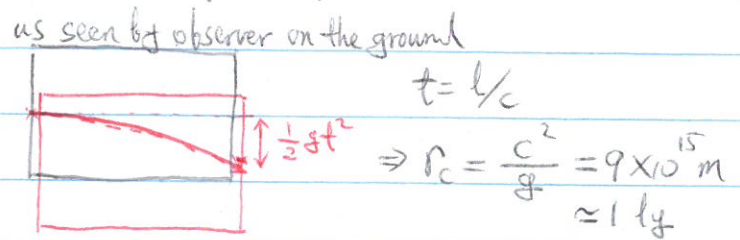 as seen by observer on the ground
t = l/c
½ gt²
⇒ r_c = c²/g = 9×10¹⁵ m
≃ 1 ly